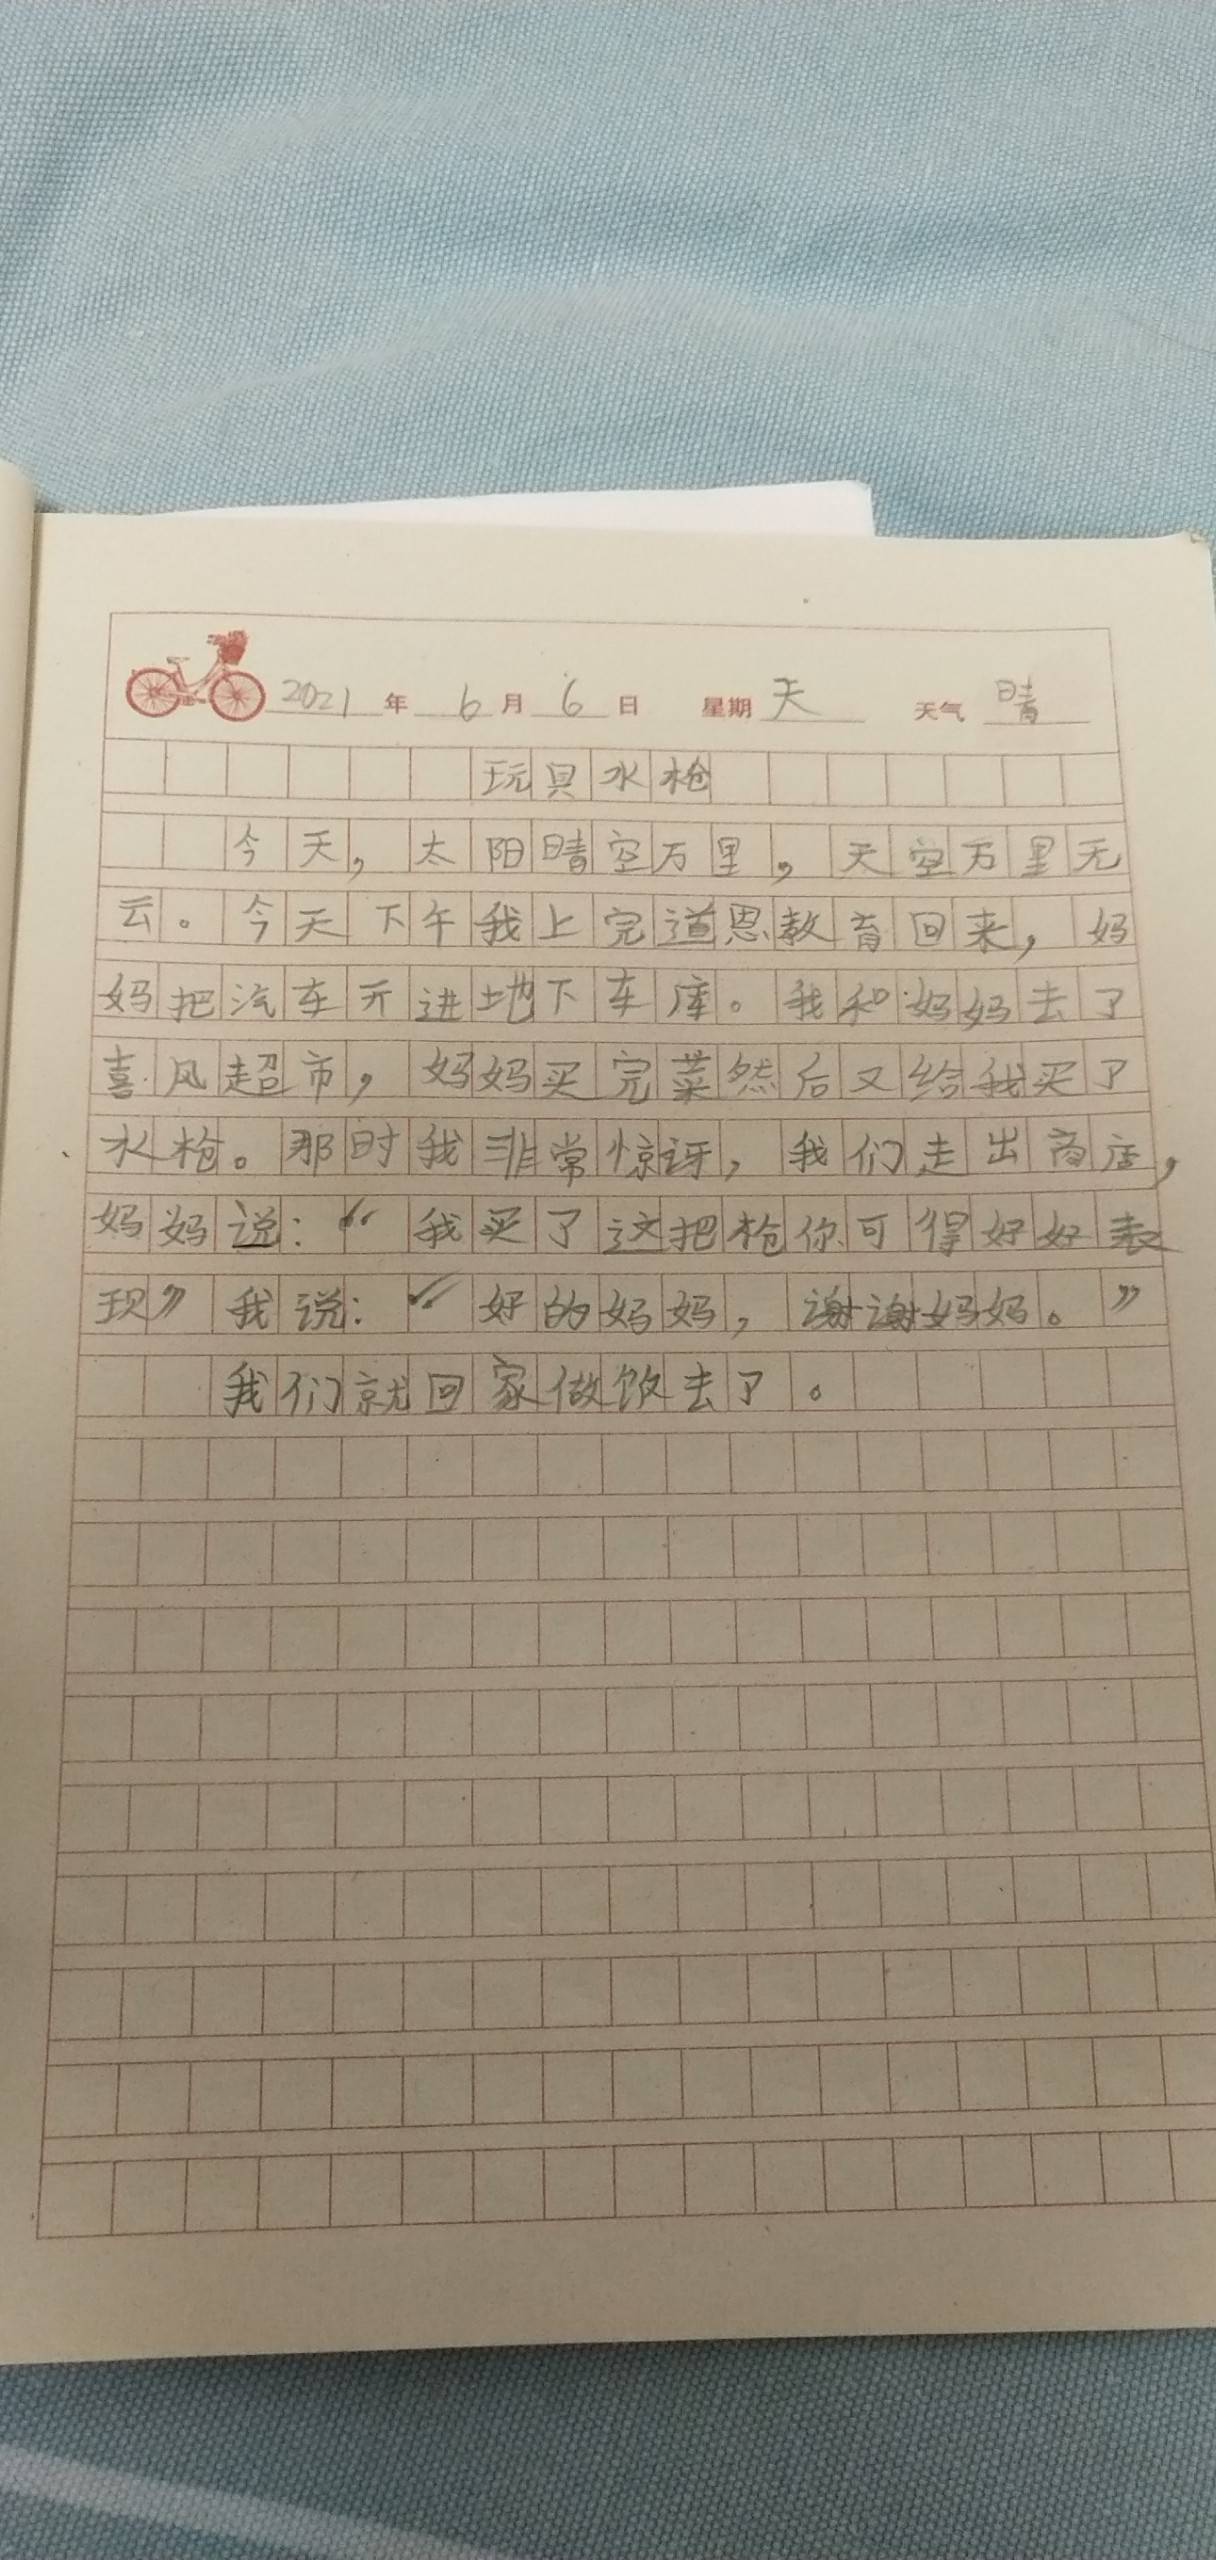 2021年6月6日 星期天 天气 晴
玩具水枪
今天，太阳晴空万里，天空万里无
云。今天下午我上完道恩教育回来，妈
妈把汽车开进地下车库。我和妈妈去了
喜风超市，妈妈买完菜然后又给我买了
水枪。那时我非常惊讶，我们走出商店，
妈妈说：“我买了这把枪你可得好好表
现”我说：“好的妈妈，谢谢妈妈。”
我们就回家做饭去了。